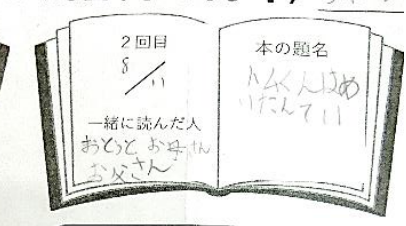 2回目
8/11
一緒に読んだ人
おとうと お母さん
お父さん
本の題名
トムくんはめ
いたんてい